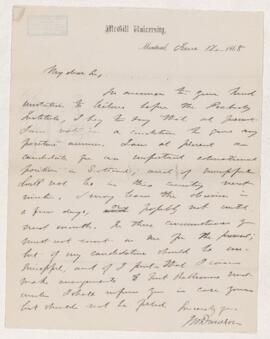 McGill University,
Montreal, June 12 1868
My dear Sir,
In answer to your kind
invitation to lecture before the Peabody
Institute, I beg to say that at present
I am not in a condition to give any
positive answer. I am at present a
candidate for an important educational
position in Scotland, and if successful
shall not be in this country next
winter. I may learn the decision in
a few days, not until
next month. In these circumstances you
must not count on me for the present;
but if my candidature should be un-
successful, and if I find that I can
make arrangements to visit Baltimore next
winter I shall inform you in case your
list should not be filled
Sincerely yours
JWDawson